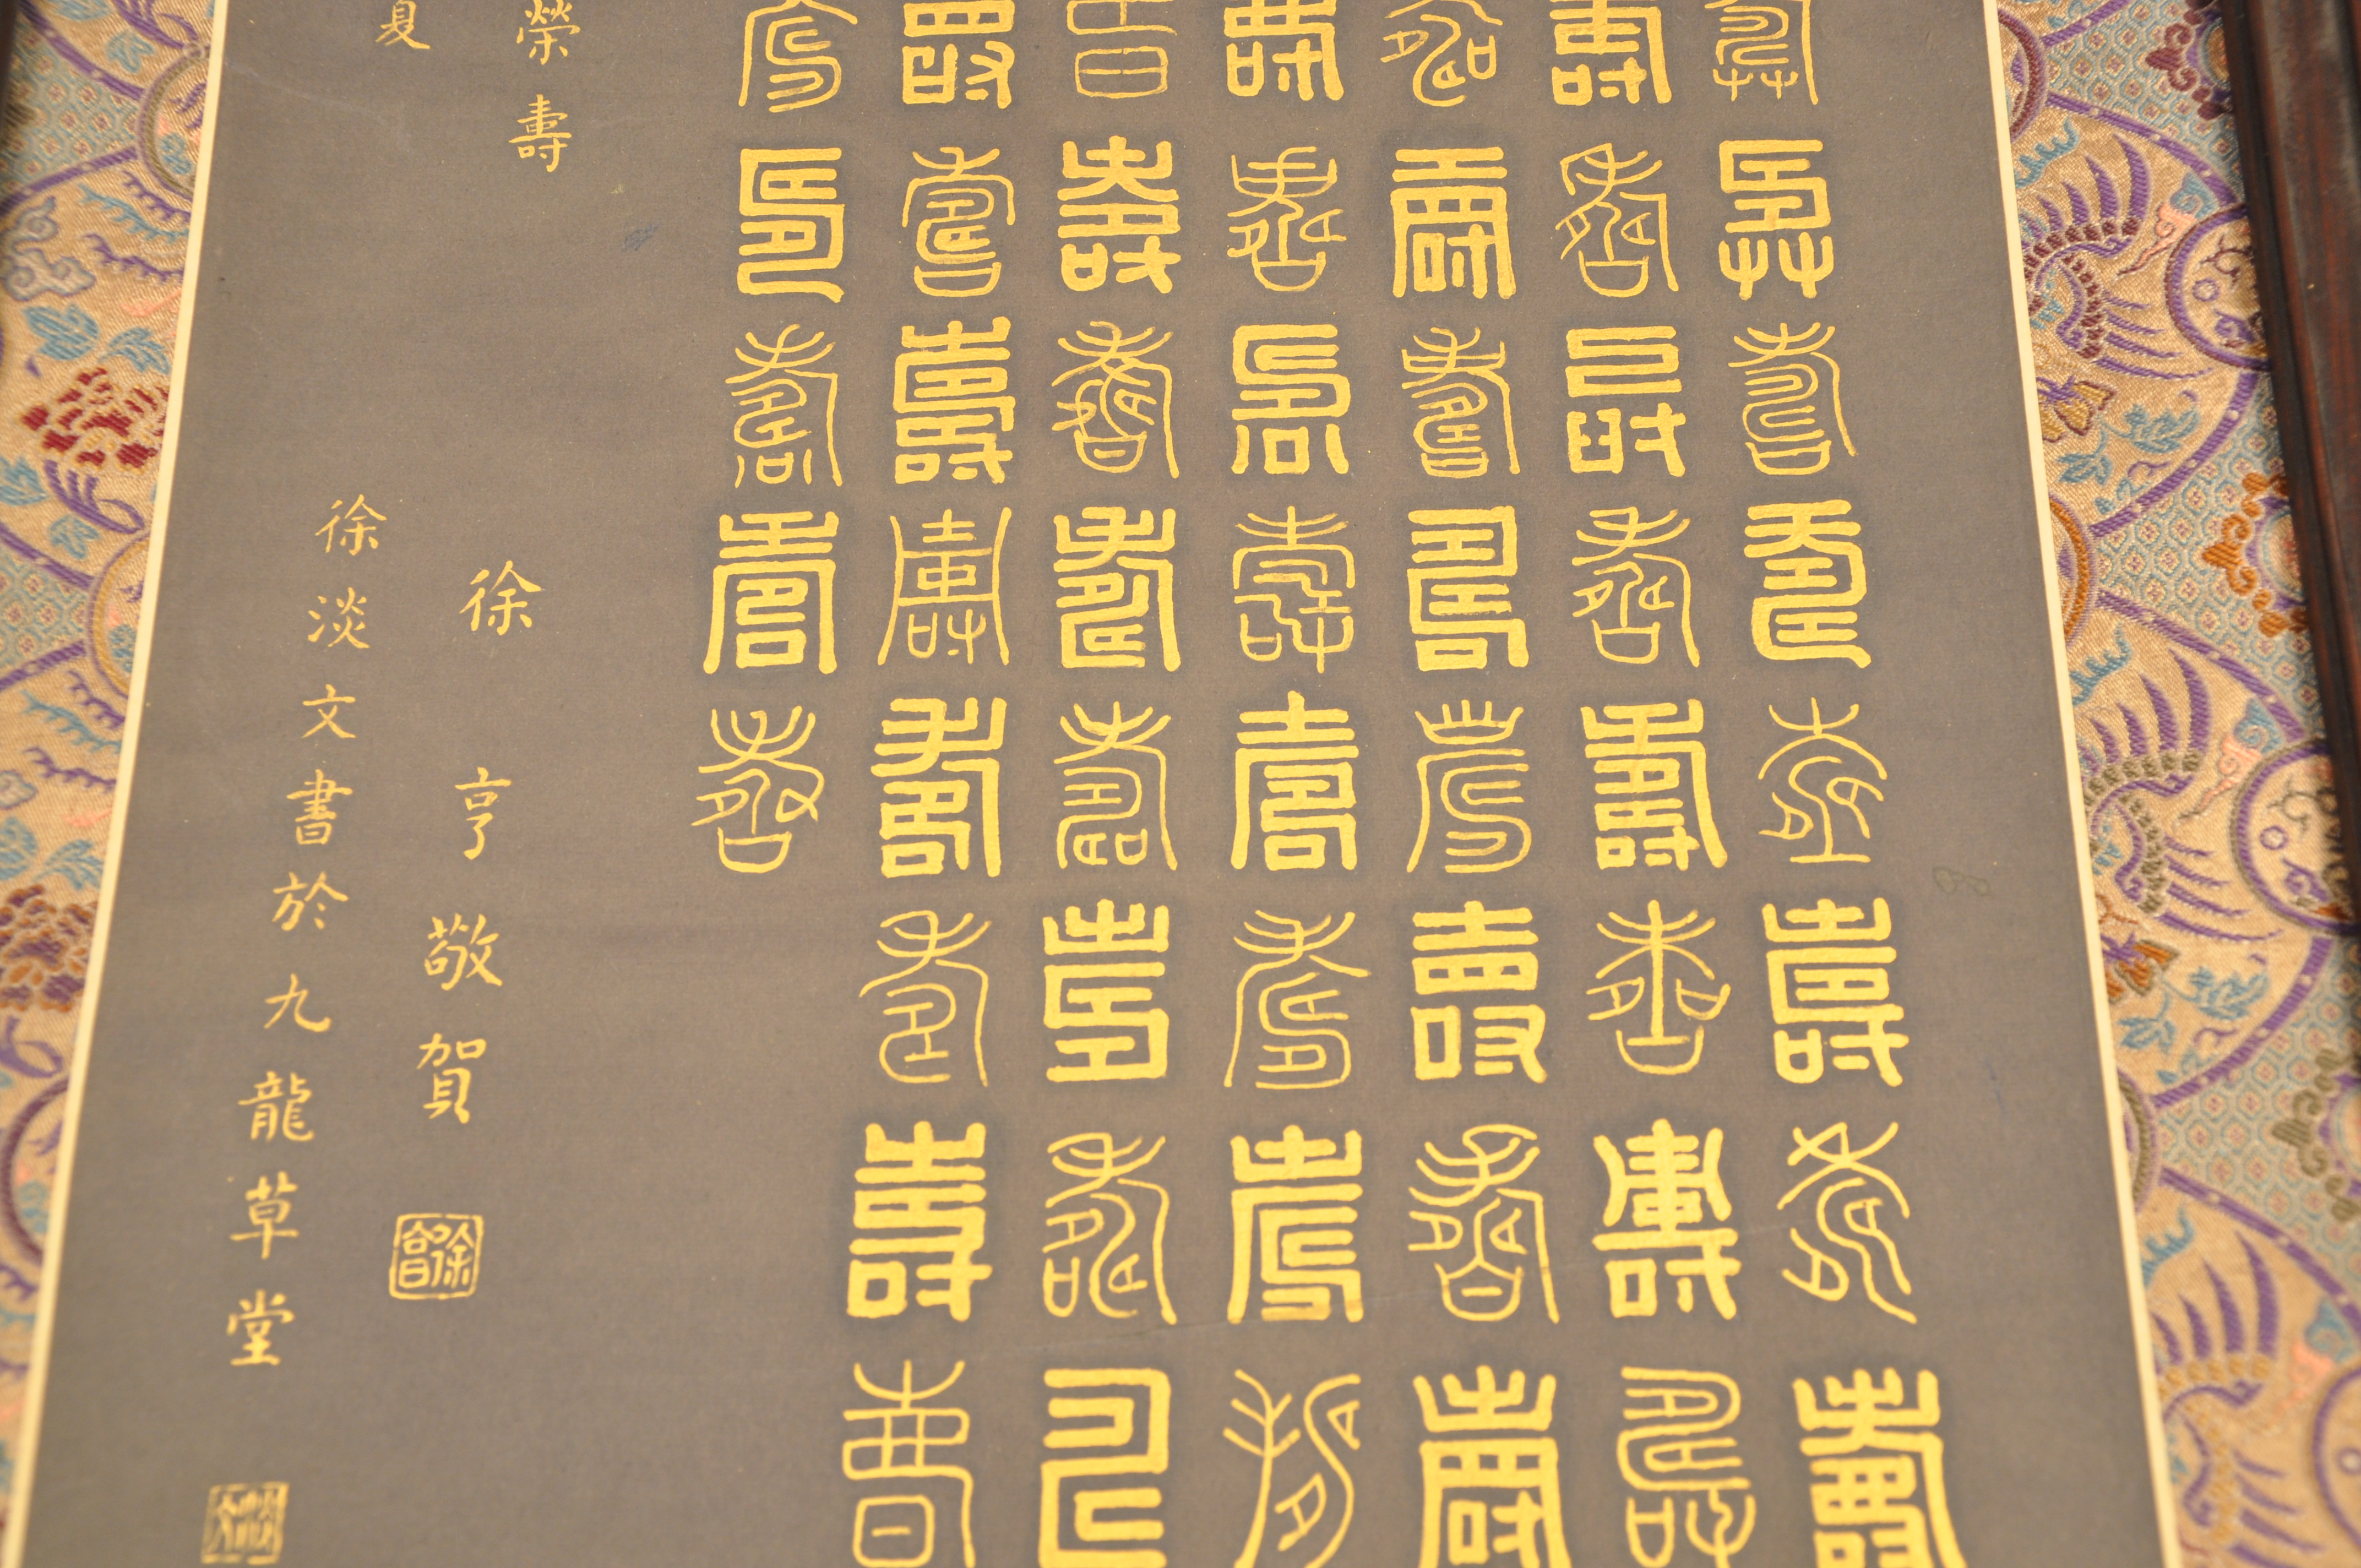 壽壽壽壽壽壽壽壽
壽壽壽壽壽壽壽壽
壽壽壽壽壽壽壽壽
壽壽壽壽壽壽壽壽
壽壽壽壽壽壽壽壽
壽壽壽壽壽壽壽壽
壽壽壽壽壽
榮壽
徐亨敬賀
徐亨
夏
徐淡文書於九龍草堂